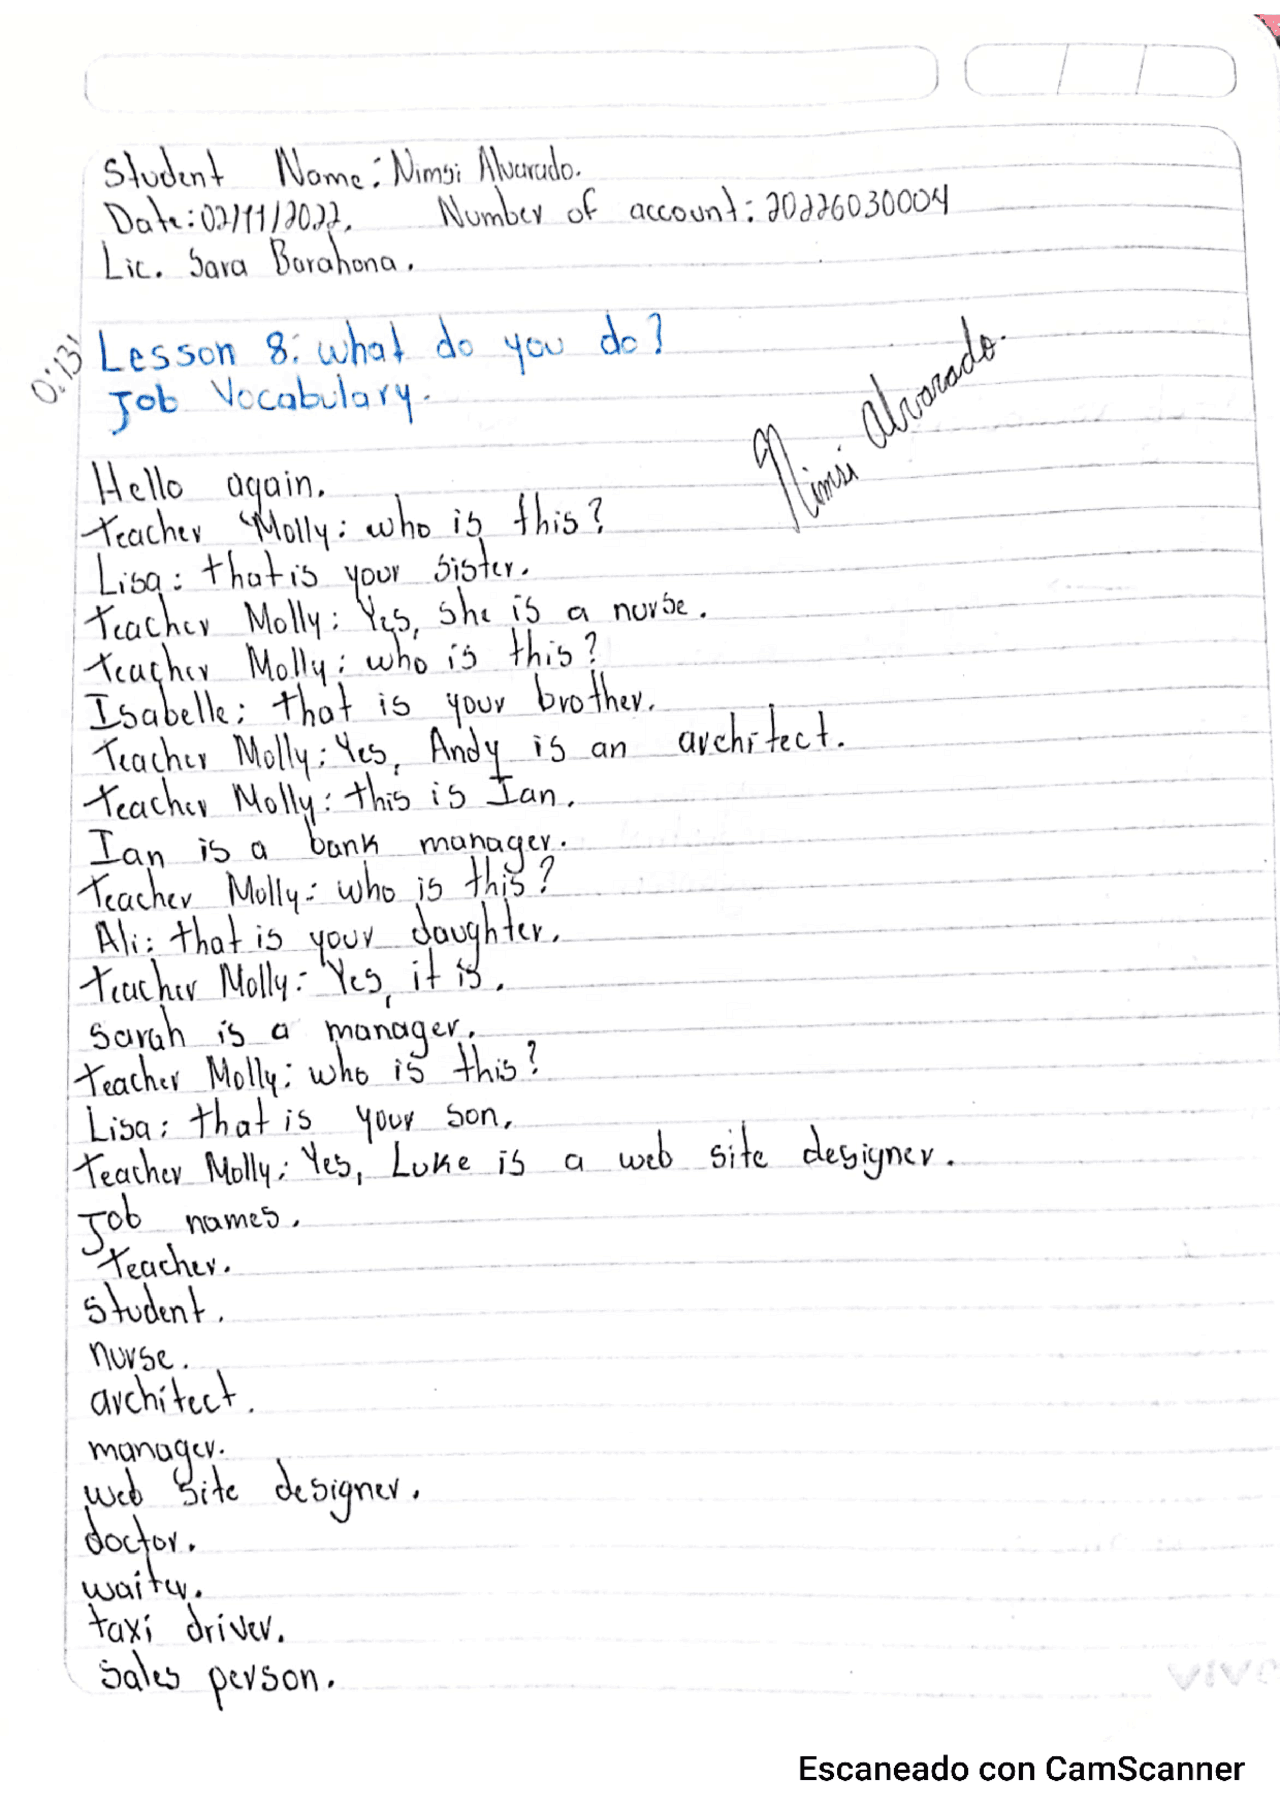 Student Name: Nimsi Alvarado.
Date: 02/11/2022. Number of account: 20226030004
Lic. Sara Barahona.
0:13'
Lesson 8: what do you do?
Job Vocabulary.
Nimsi Alvarado.
Hello again.
Teacher Molly: who is this?
Lisa: that is your sister.
Teacher Molly: Yes, she is a nurse.
Teacher Molly: who is this?
Isabelle: that is your brother.
Teacher Molly: Yes, Andy is an architect.
Teacher Molly: this is Ian.
Ian is a bank manager.
Teacher Molly: who is this?
Ali: that is your daughter.
Teacher Molly: Yes, it is.
Sarah is a manager.
Teacher Molly: who is this?
Lisa: that is your son.
Teacher Molly: Yes, Luke is a web site designer.
Job names.
Teacher.
Student.
nurse.
architect.
manager.
web site designer.
doctor.
waiter.
taxi driver.
Sales person.
Escaneado con CamScanner